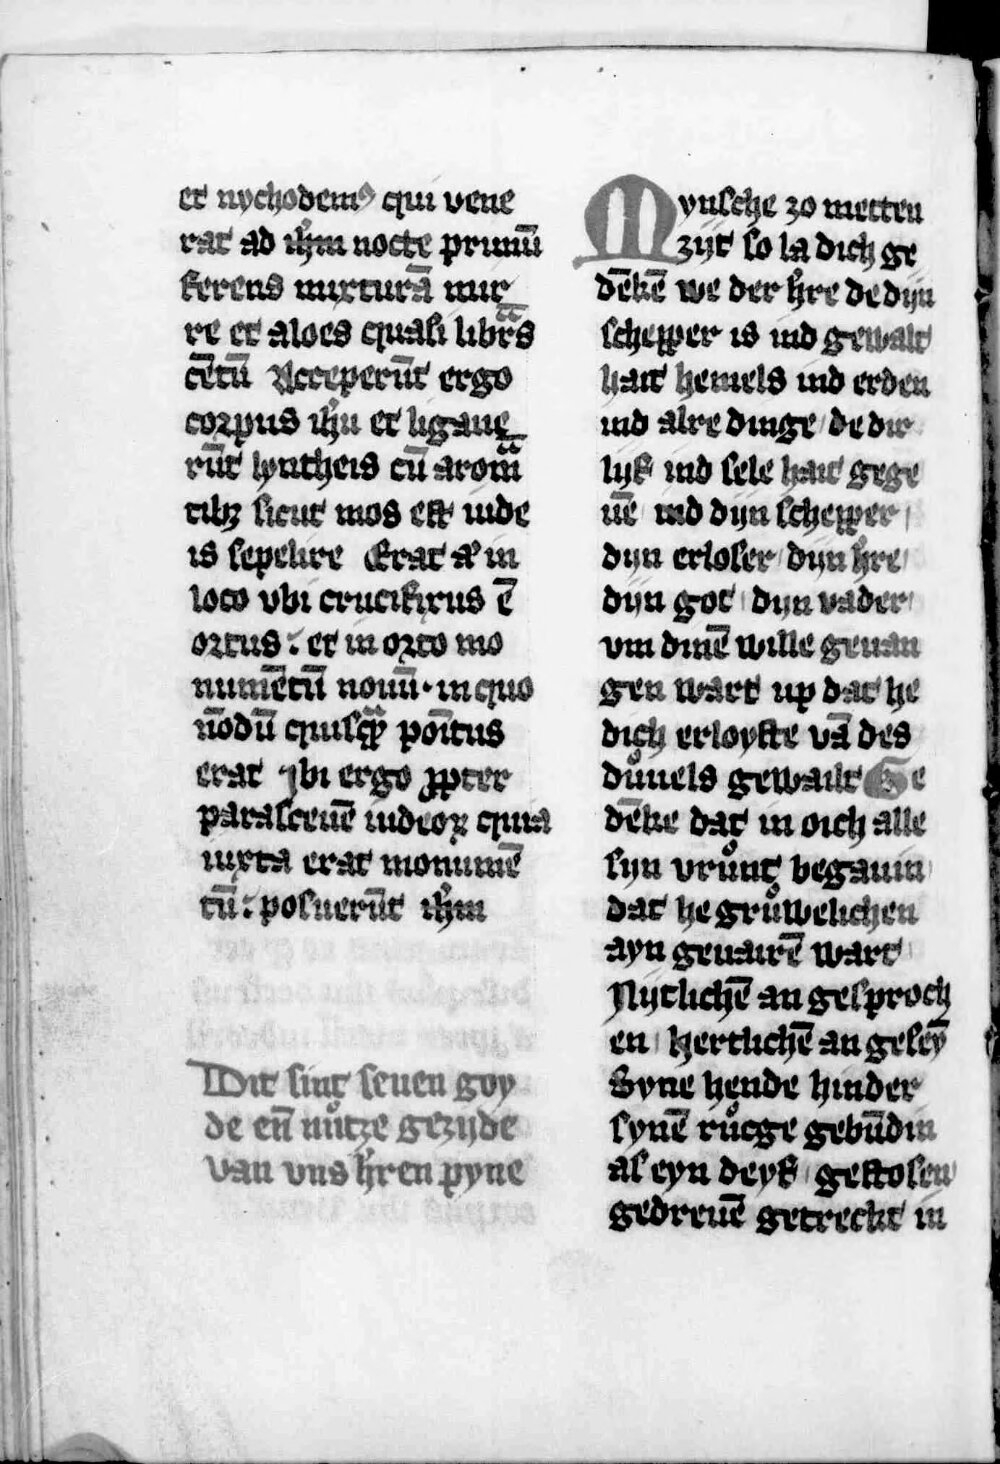 et nychodemꝰ qui vene
rat ad ihm̄ nocte primū
ferens mixturā mir
re et aloes quasi libras
cētū Acceperūt ergo
corpus ihū et ligaue
rūt lyntheis cū aroma
tibꝫ sicut mos est iude
is sepelire Erat aͥ in
loco vbi crucifixus ē
ortus : et in orto mo
numētū nouū · in quo
nōdū quisqᷓ poītus
erat Jbi ergo ꝓpter
parasceuē iudeoꝝ quia
iuxta erat monumē
tū : posuerūt ihm̄
Dit sint seuen goy
de en̄ nůtze gezijde
van vns hr̄en pyne
Mynsche zo metten
zijt so la dich ge
dēkē we der hr̄e de dijn
schepper is ind gewalt
hait hemels ind erden
ind alre dinge / de dir
lijf ind sele hait gege
uē ind dijn schepper /
dijn erloser / dijn hr̄e /
dijn got / dijn vader /
vm dinē wille geuan
gen wart up dat he
dich erloyste vā des
důuels gewailt Ge
dēke dat in oich alle
syn vrůnt begauin
dat he grůwelichen
ayn geuairē wart
Nijtlichē an gesproch
en / hertlichē an geseȳ
Syne hende hinder
synē růcge gebūdin
as eyn deyf / gestosen
gedreuē getreckt in